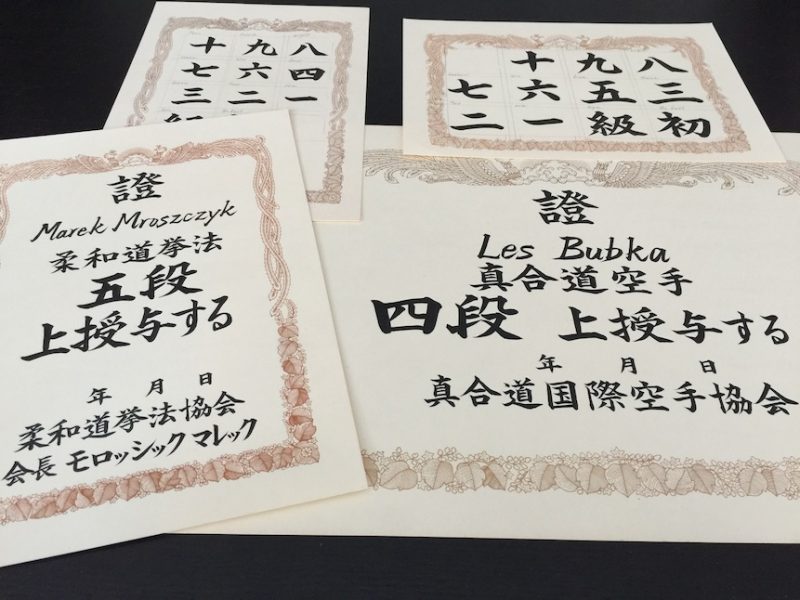 十九八
七六四
三二一
級
十九八
七六五三
二一級初
證
Marek Mroszczyk
柔和道拳法
五段
上授与する
年 月 日
柔和道拳法協会
会長 モロッシック マレック
證
Les Bubka
真合道空手
四段 上授与する
年 月 日
真合道国際空手協会